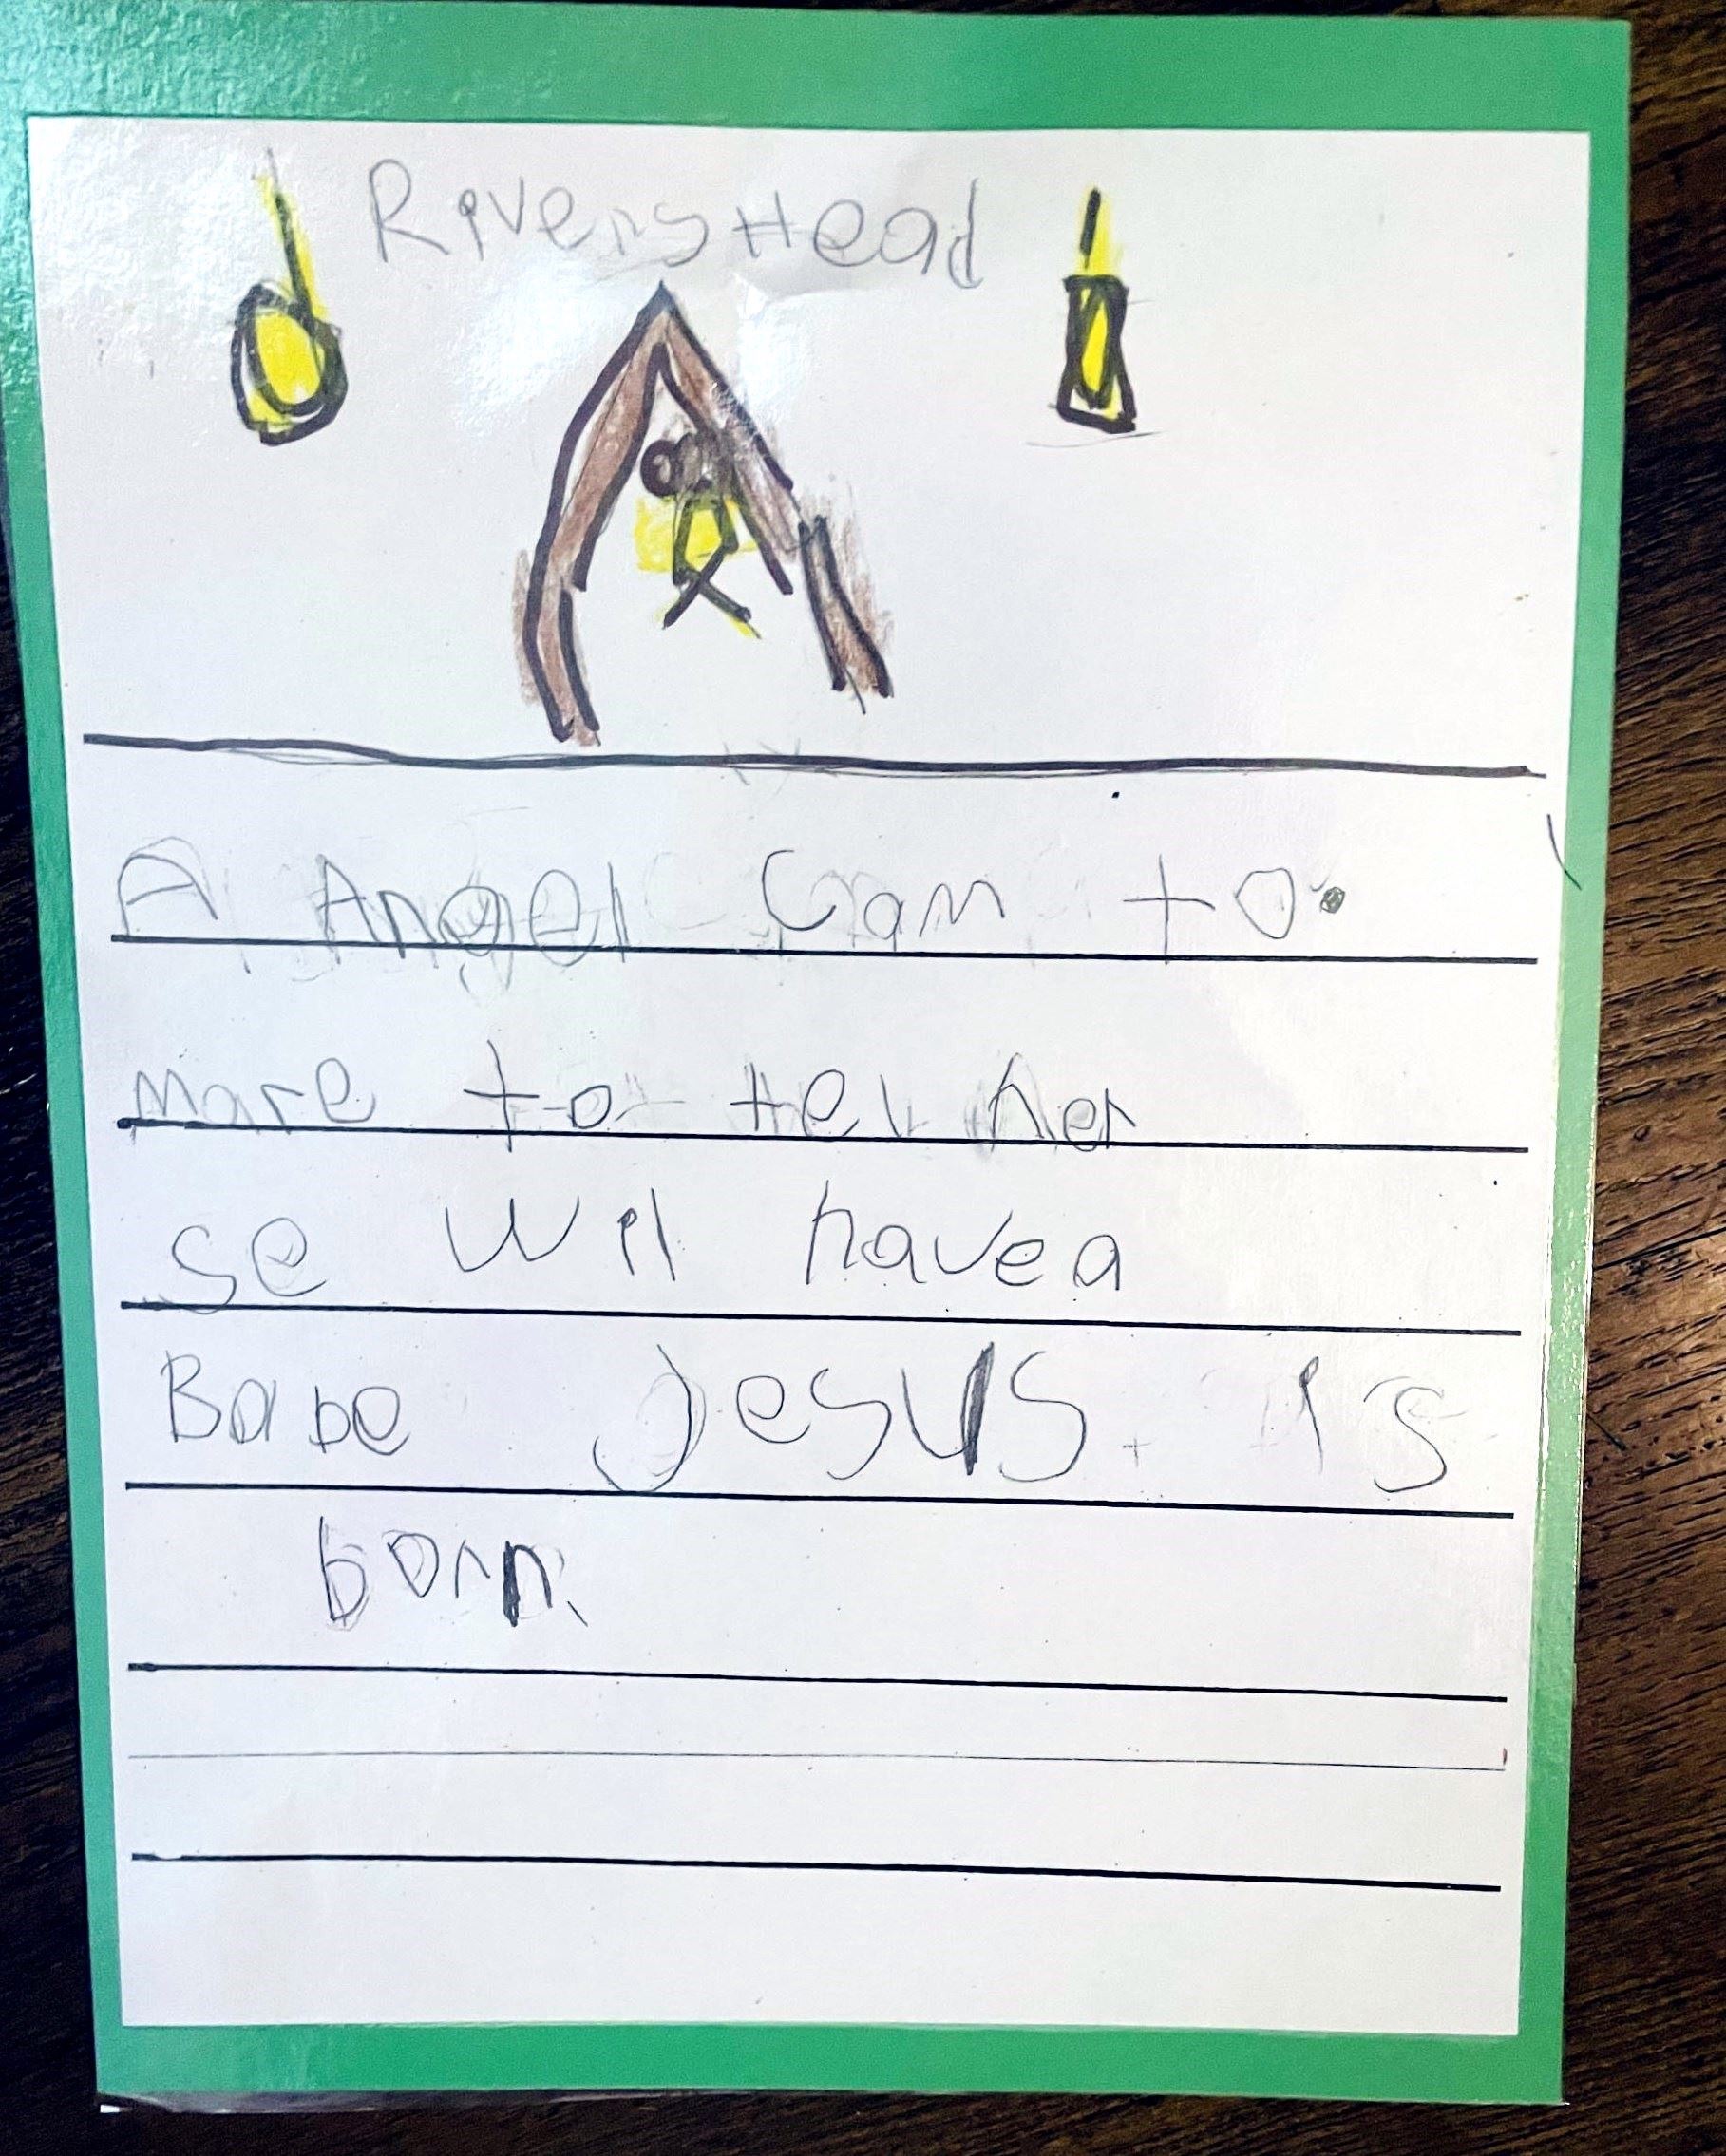 RiversHead
A Angel Cam to.
mare to tel her
se wil have a
Babe Jesus. is
born